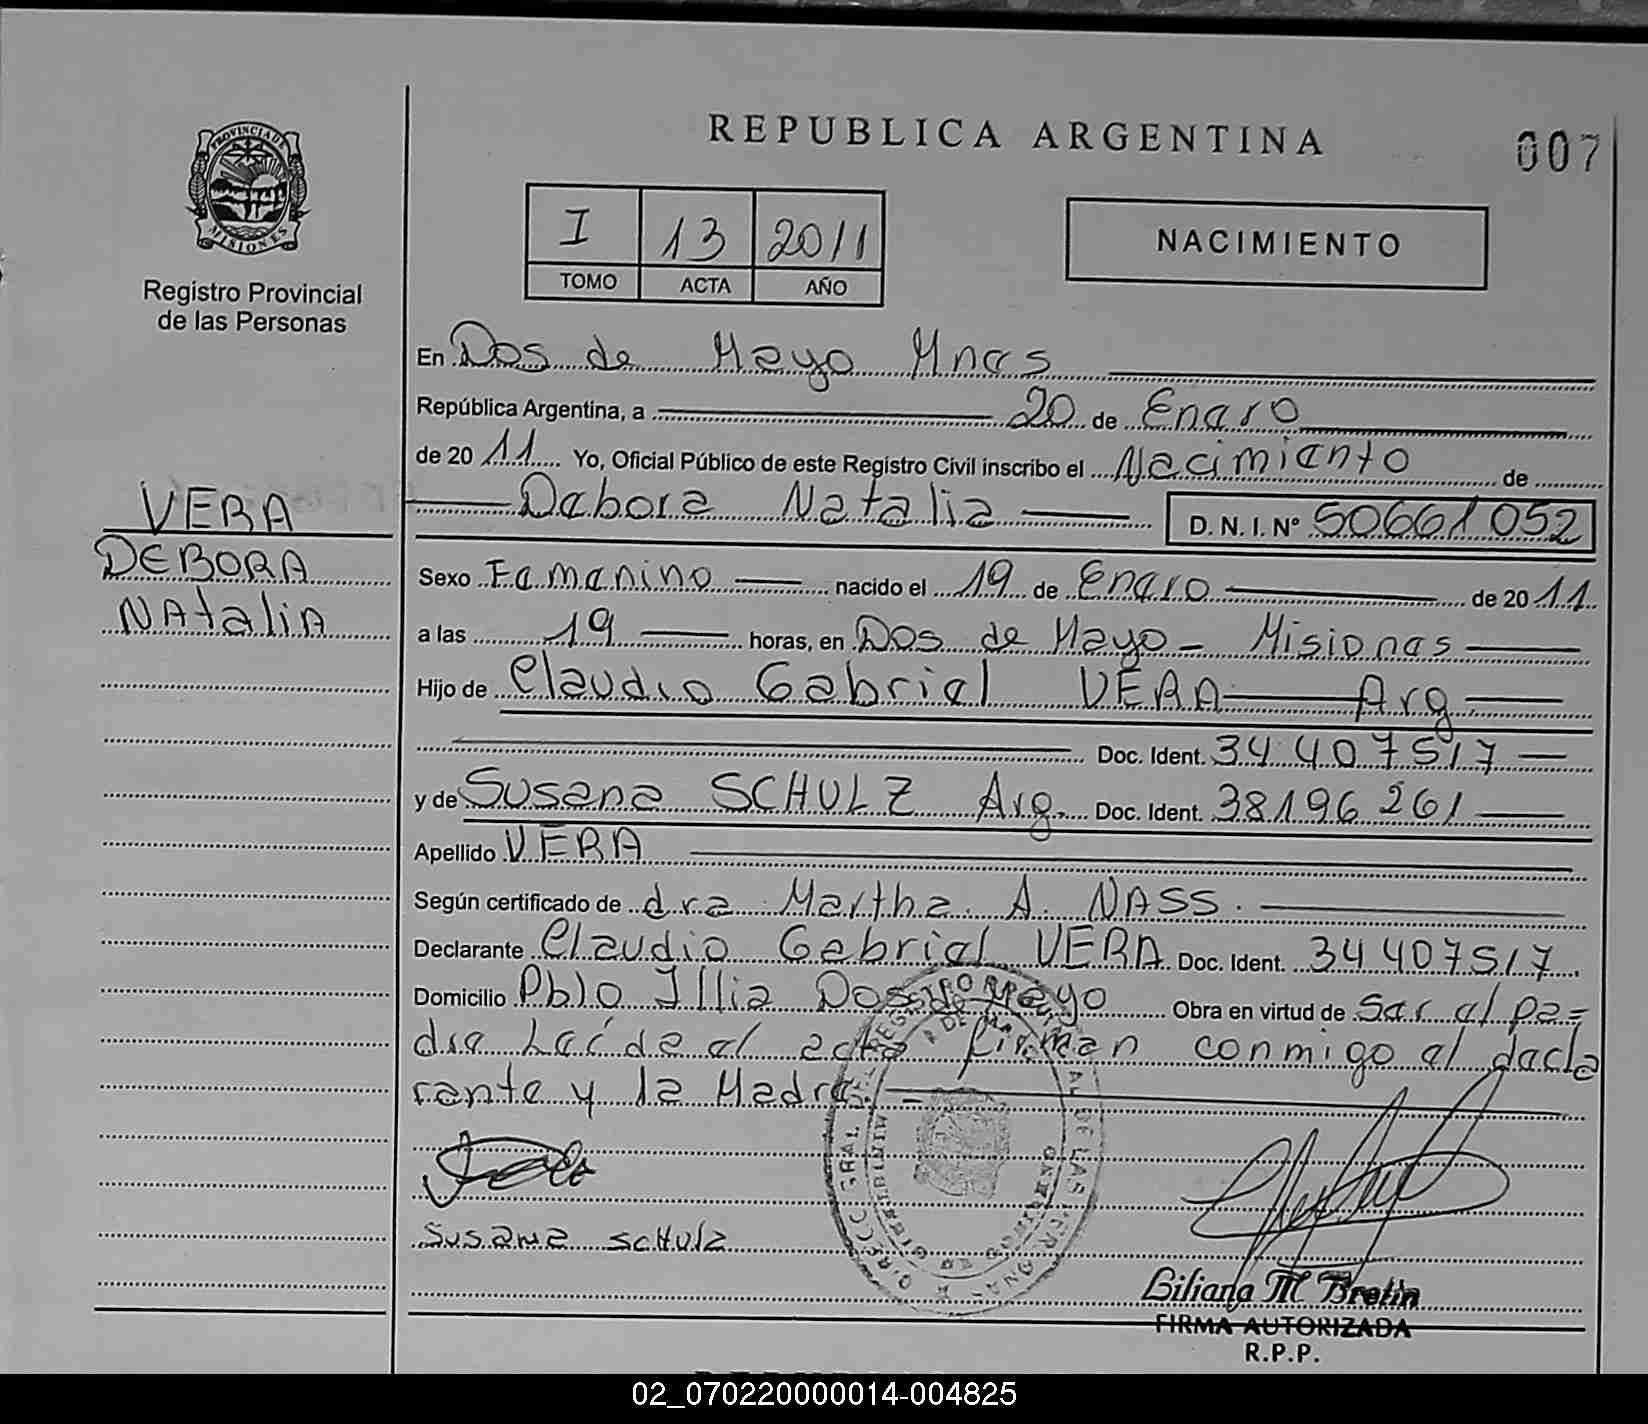 REPUBLICA ARGENTINA
007
PROVINCIA DE
MISIONES
Registro Provincial
de las Personas
I 13 2011
TOMO ACTA AÑO
NACIMIENTO
VERA
DEBORA
NAtaliA
En Dos de Mayo Mnes
República Argentina, a 20 de Enero
de 20 11 Yo, Oficial Público de este Registro Civil inscribo el Nacimiento de
Debora Natalia D. N. I. Nº 50661052
Sexo Femenino nacido el 19 de Enero de 20 11
a las 19 horas, en Dos de Mayo - Misiones
Hijo de Claudio Gabriel VERA Arg
Doc. Ident. 34 407517
y de Susana SCHULZ Arg. Doc. Ident. 38196261
Apellido VERA
Según certificado de dra Martha A. NASS.
Declarante Claudio Gabriel VERA Doc. Ident. 34 407517
Domicilio Pblo Illia Dos de Mayo Obra en virtud de Ser el pa=
dre Leída el acta firman conmigo el decla
rante y la Madre.
Susana scHulz
Liliana M Bretin
FIRMA AUTORIZADA
R.P.P.
02_070220000014-004825